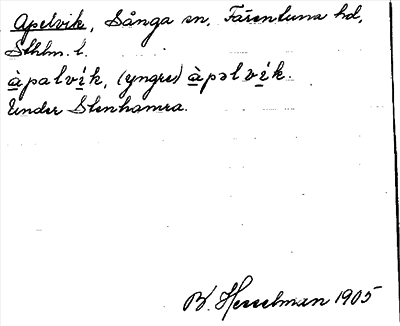 Apelvik, Sånga sn, Färentuna hd,
Sthlm. l.
àpalvík, (yngre) àpəlvík.
Under Stenhamra.
B. Hesselman 1905